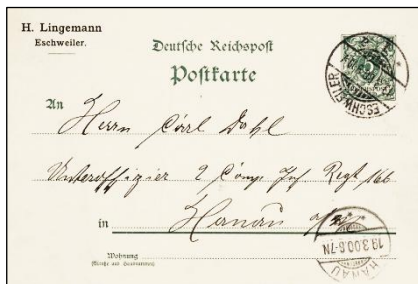 H. Lingemann
Eschweiler.
Deutsche Reichspost
Postkarte
An
Herrn Carl Dahl
Unteroffizier 2 Comp Inf Regt 166
in Hanau a/M
Wohnung
(Straße und Hausnummer)
ESCHWEILER
HANAU
19.3.00.6-7N